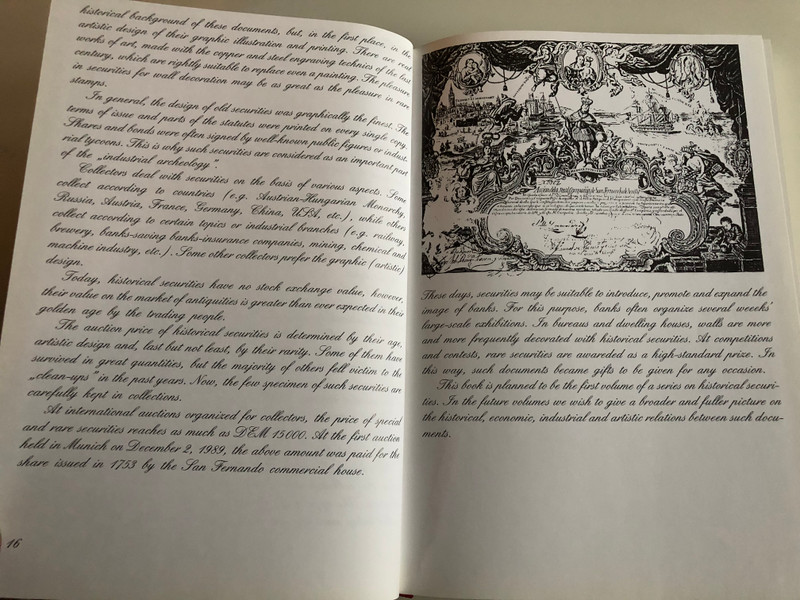 historical background of these documents, but, in the first place, in the
artistic design of their graphic illustration and printing. There are real
works of art, made with the copper and steel engraving technics of the last
century, which are rightly suitable to replace even a painting. The pleasure
in securities for wall decoration may be as great as the pleasure in rare
stamps.
In general, the design of old securities was graphically the finest. The
terms of issue and parts of the statutes were printed on every single copy.
Shares and bonds were often signed by well-known public figures or indust-
rial tycoons. This is why such securities are considered as an important part
of the „industrial archeology”.
Collectors deal with securities on the basis of various aspects. Some
collect according to countries (e.g. Austrian-Hungarian Monarchy,
Russia, Austria, France, Germany, China, USA, etc.), while others
collect according to certain topics or industrial branches (e.g. railway,
brewery, banks-saving banks-insurance companies, mining, chemical and
machine industry, etc.). Some other collectors prefer the graphic (artistic)
design.
Today, historical securities have no stock exchange value, however,
their value on the market of antiquities is greater than ever expected in their
golden age by the trading people.
The auction price of historical securities is determined by their age,
artistic design and, last but not least, by their rarity. Some of them have
survived in great quantities, but the majority of others fell victim to the
„clean-ups” in the past years. Now, the few specimen of such securities are
carefully kept in collections.
At international auctions organized for collectors, the price of special
and rare securities reaches as much as DEM 15000. At the first auction
held in Munich on December 2, 1989, the above amount was paid for the
share issued in 1753 by the San Fernando commercial house.
16
These days, securities may be suitable to introduce, promote and expand the
image of banks. For this purpose, banks often organize several weeeks'
large-scale exhibitions. In bureaus and dwelling houses, walls are more
and more frequently decorated with historical securities. At competitions
and contests, rare securities are awareded as a high-standard prize. In
this way, such documents became gifts to be given for any occasion.
This book is planned to be the first volume of a series on historical securi-
ties. In the future volumes we wish to give a broader and fuller picture on
the historical, economic, industrial and artistic relations between such docu-
ments.